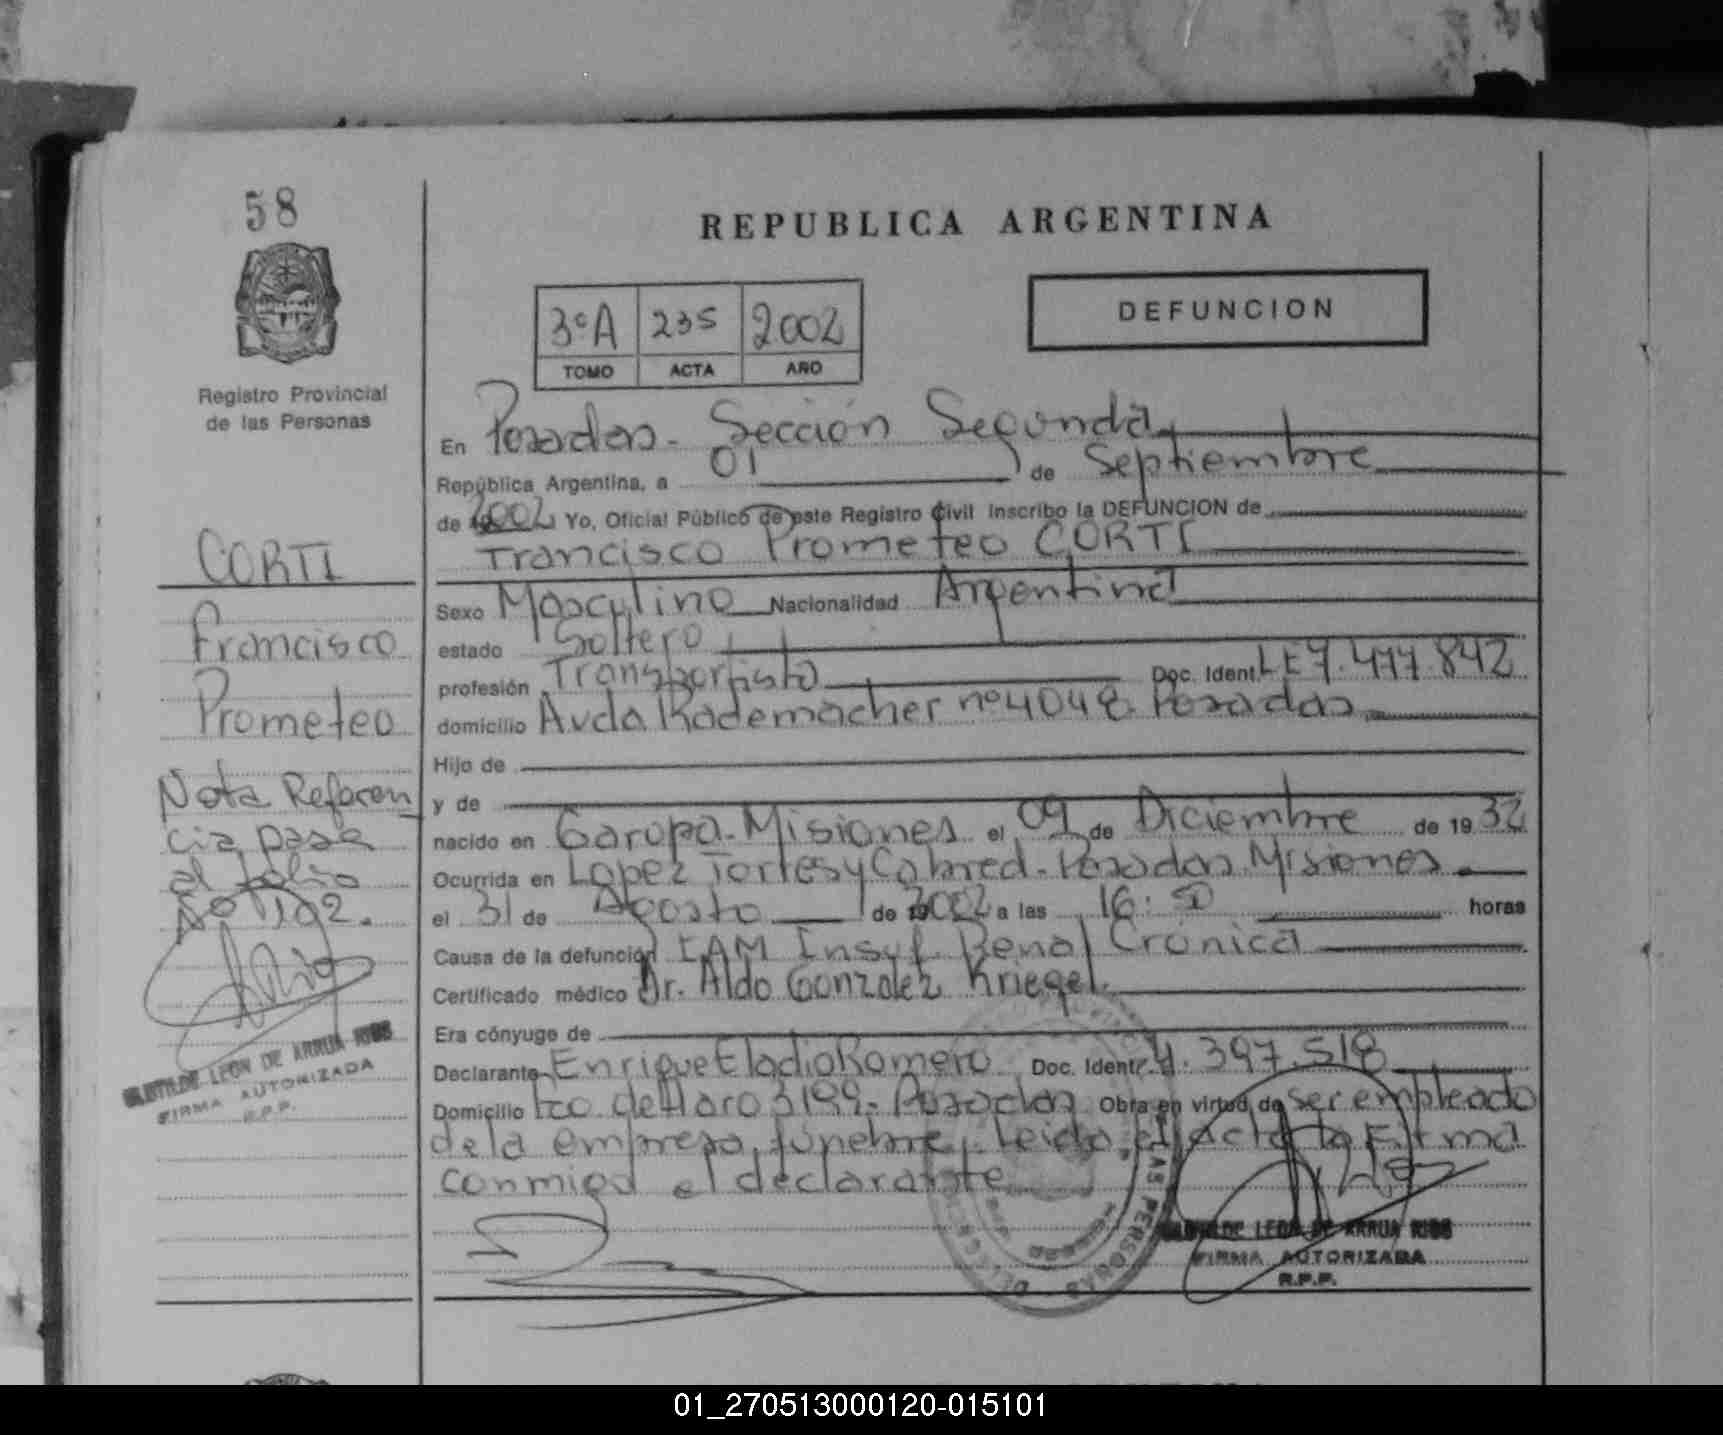 58
Registro Provincial
de las Personas
CORTI
Francisco
Prometeo
Nota Referen
cia pasa
al folio
Nº 192.
LEON DE ARRUA RIOS
FIRMA AUTORIZADA
R.P.P.
REPUBLICA ARGENTINA
3ºA 235 2002
TOMO ACTA AÑO
DEFUNCION
En Posadas - Sección Segunda
República Argentina, a 01 de Septiembre
de 2002 Yo, Oficial Público de este Registro Civil inscribo la DEFUNCION de
Francisco Prometeo CORTI
Sexo Masculino Nacionalidad Argentina
estado Soltero
profesión Transportista Doc. Ident. LE 7.477.842
domicilio Avda Rademacher nº 4048 Posadas
Hijo de
y de
nacido en Garupa - Misiones el 09 de Diciembre de 19 32
Ocurrida en Lopez Torres y Cabred - Posadas Misiones
el 31 de Agosto de 2002 a las 16:50 horas
Causa de la defunción IAM Insuf. Renal Cronica
Certificado médico Dr. Aldo Gonzalez Kriegel
Era cónyuge de
Declarante Enrique Eladio Romero Doc. Ident. 4.397.518
Domicilio Fco. de Haro 3199 - Posadas Obra en virtud de ser empleado
de la empresa fúnebre. Leida el acta la Firma
conmigo el declarante
LAS PERSONAS
LEON DE ARRUA RIOS
FIRMA AUTORIZADA
R.P.P.
01_270513000120-015101